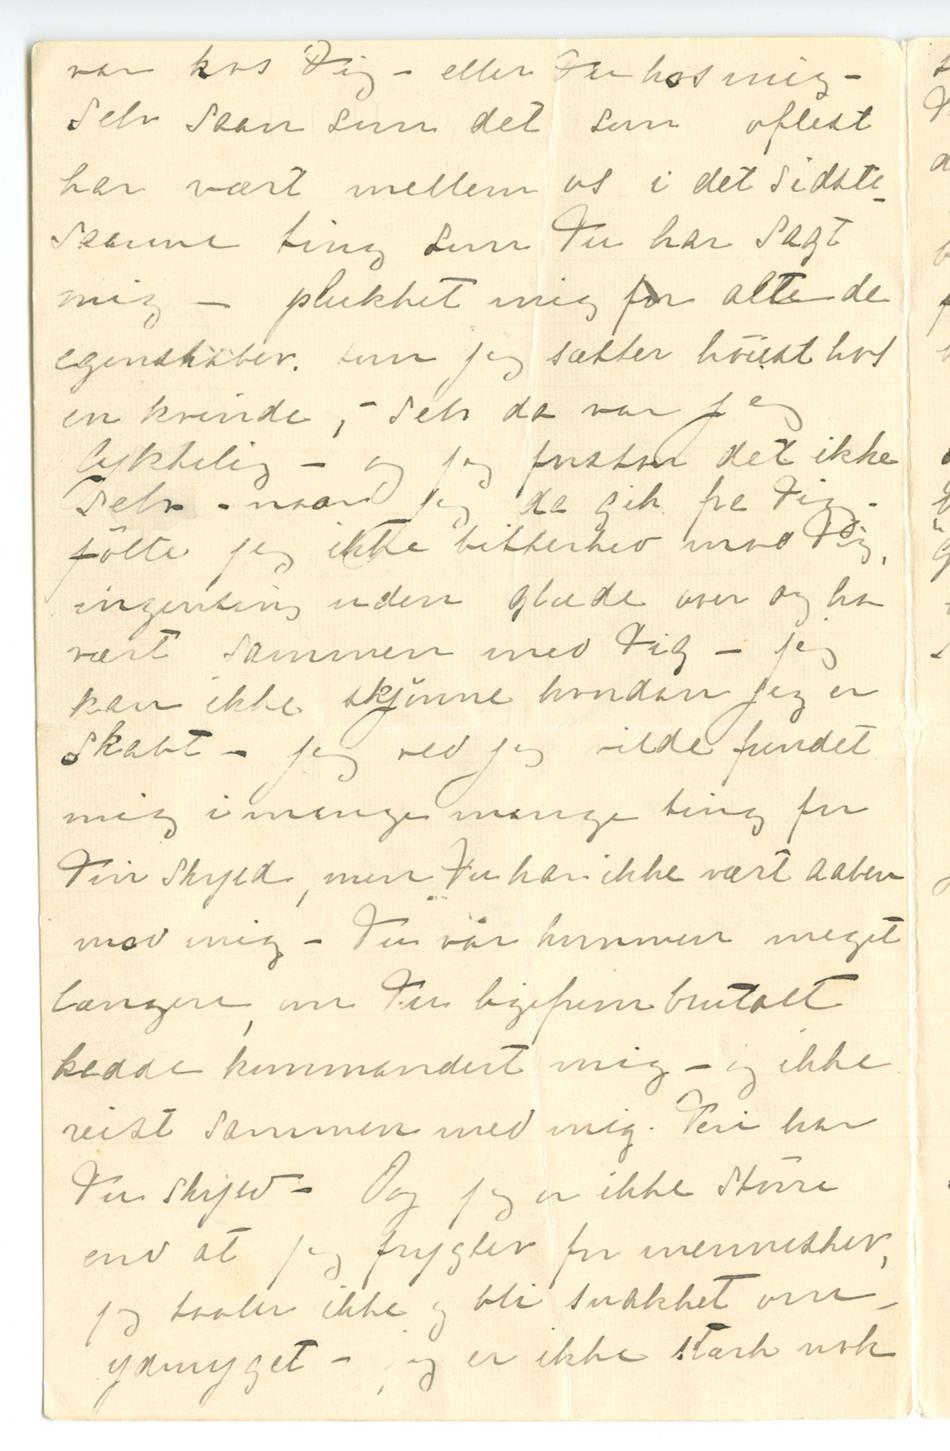 var hos Dig – eller Du hos mig –
selv saan som det som oftest
har vært mellem os i det sidste –
saanne ting som Du har sagt
mig – plukket mig for alte de
egenskaber. som jeg sætter höiest hos
en kvinde, – selv da var jeg
lykkelig – og jeg forstaar det ikke
selv – naar jeg da gik fra Dig –
fölte jeg ikke bitterhed mod Dig,
ingenting uden glæde over og ha
vært sammen med Dig – jeg
kan ikke skjönne hvordan jeg er
skabt – jeg ved jeg vilde fundet
mig i mange mange ting for
Din skyld, men Du har ikke vært aaben
mod mig – Du var kommen meget
længere, om Du ligefrem brutalt
hadde kommandert mig – og ikke
reist sammen med mig. Deri har
Du skyld – Og jeg er ikke större
end at jeg frygter for mennesker,
jeg taaler ikke og bli snakket om –
ydmyget – jeg er ikke stærk nok